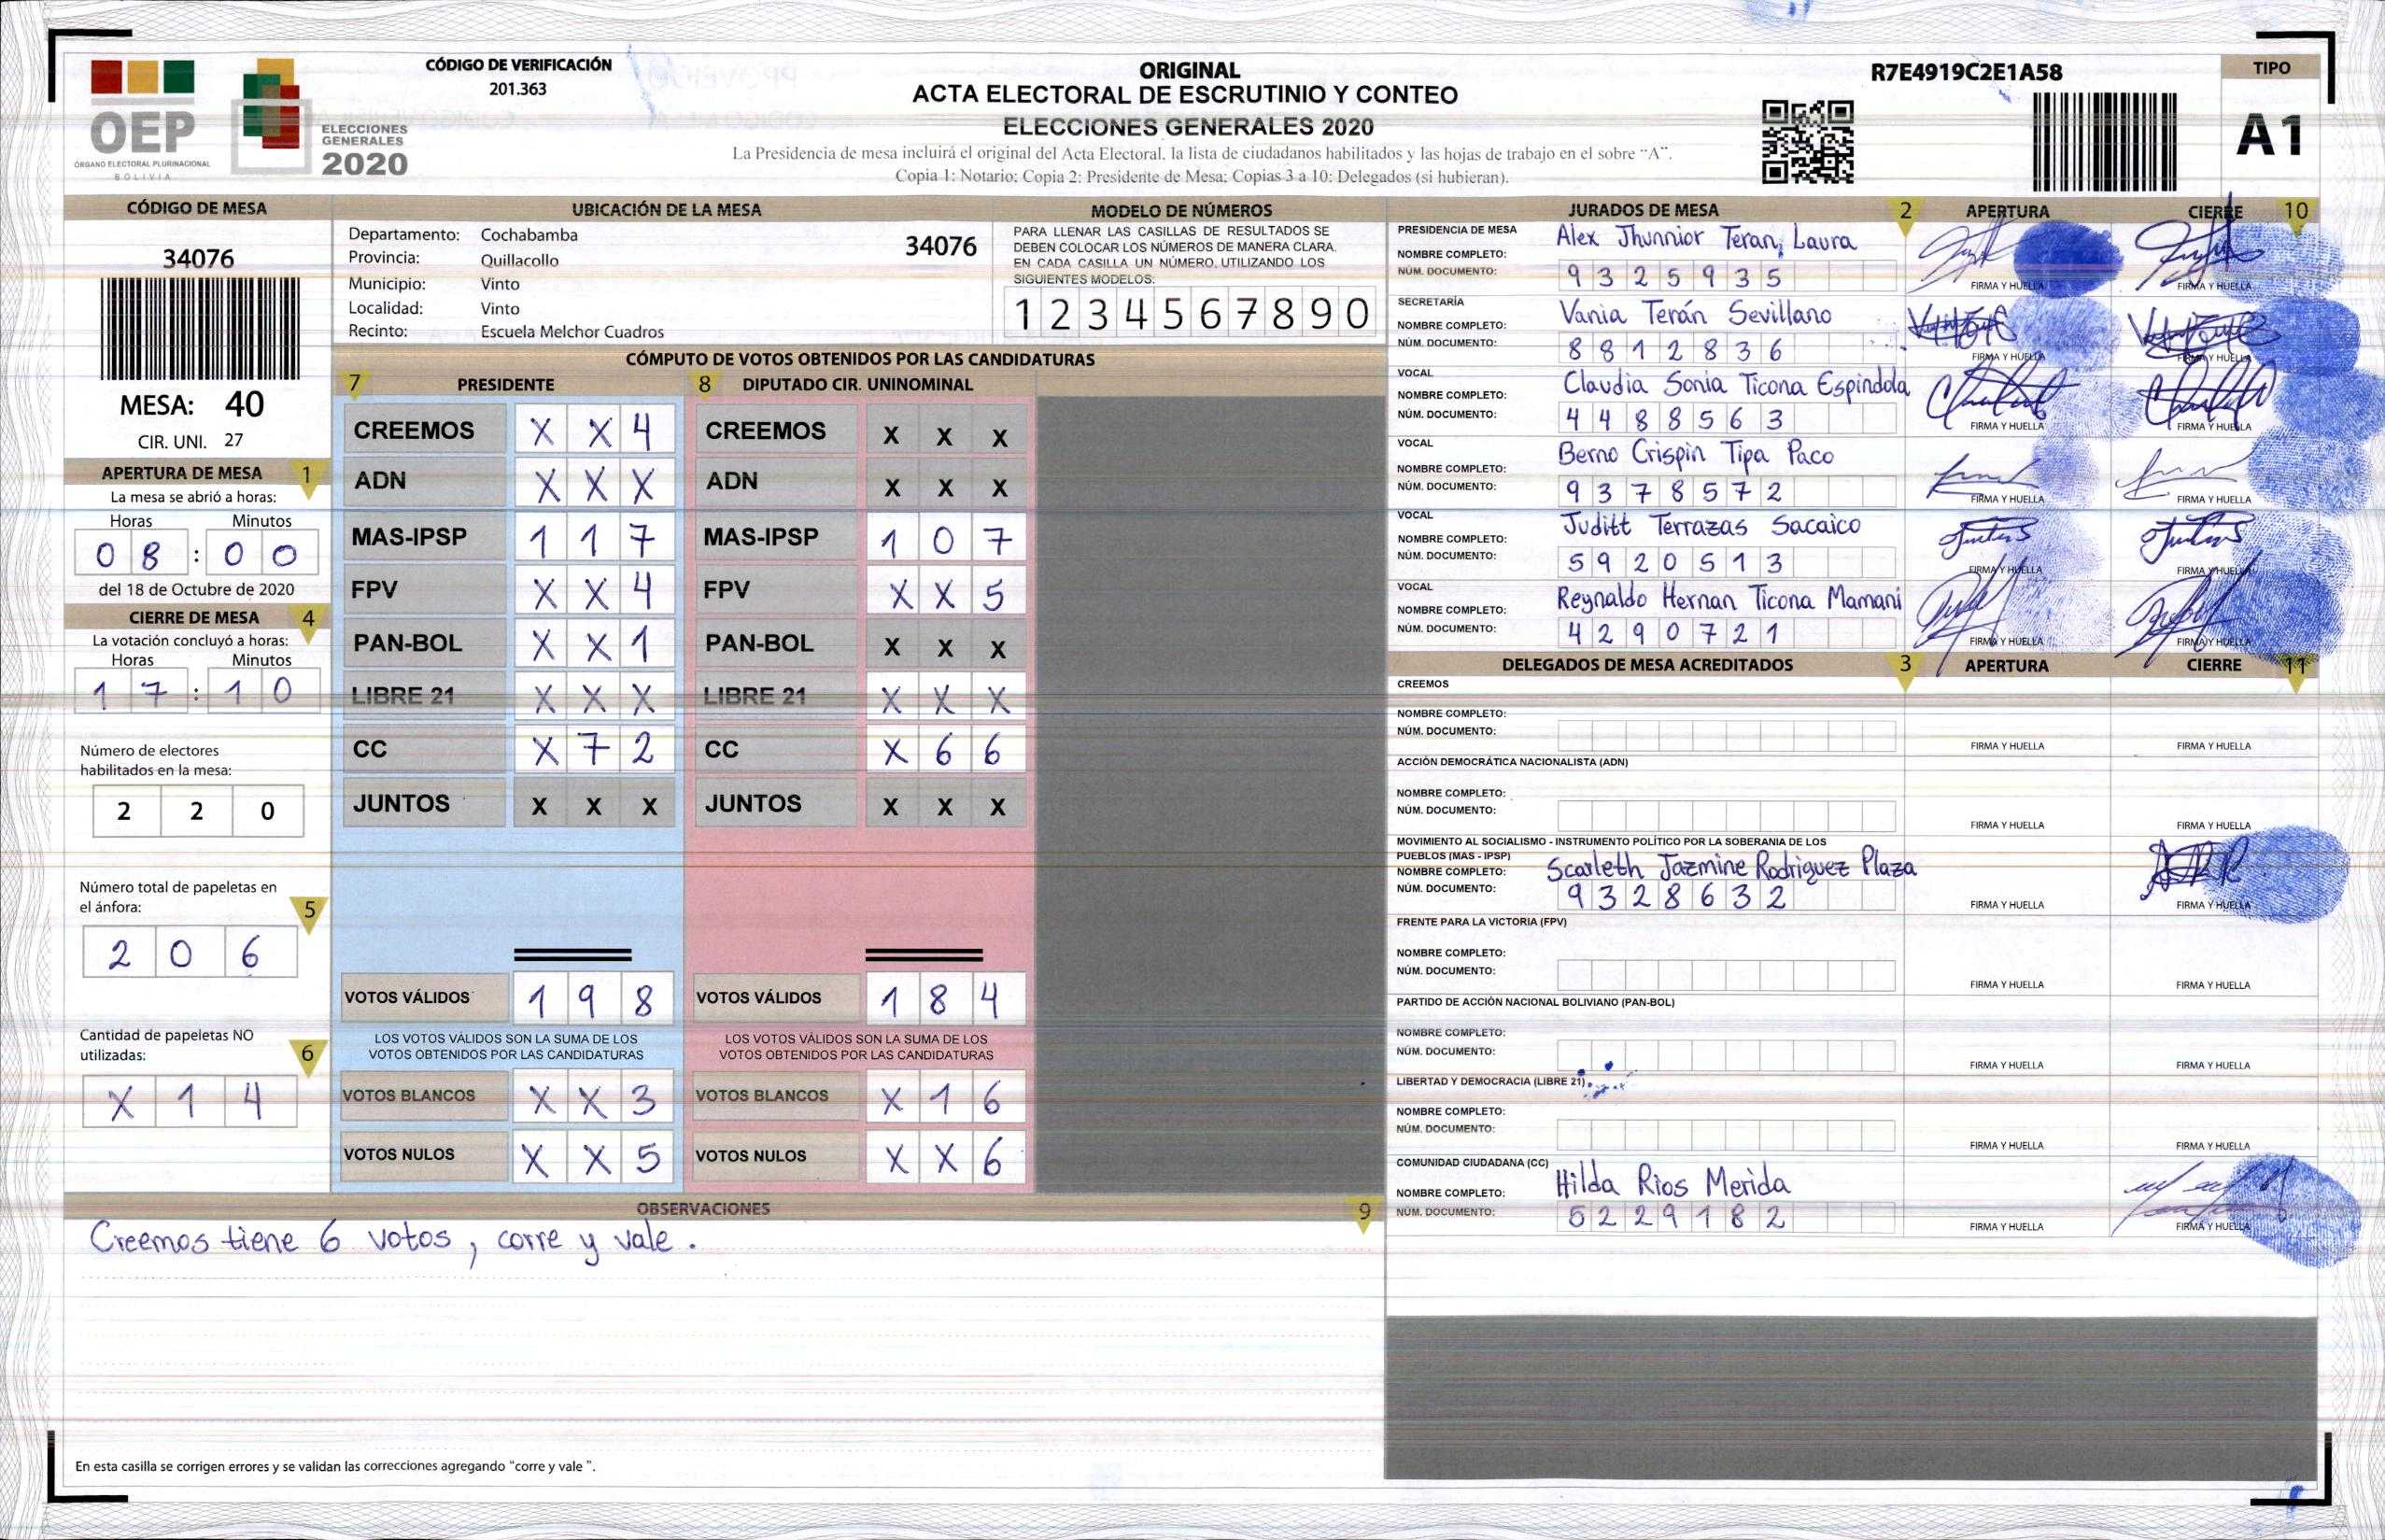 CÓDIGO DE VERIFICACIÓN
201.363
OEP
ÓRGANO ELECTORAL PLURINACIONAL
BOLIVIA
ELECCIONES
GENERALES
2020
ORIGINAL
ACTA ELECTORAL DE ESCRUTINIO Y CONTEO
ELECCIONES GENERALES 2020
La Presidencia de mesa incluirá el original del Acta Electoral, la lista de ciudadanos habilitados y las hojas de trabajo en el sobre "A".
Copia 1: Notario; Copia 2: Presidente de Mesa; Copias 3 a 10: Delegados (si hubieran).
R7E4919C2E1A58
TIPO
A1
CÓDIGO DE MESA
34076
MESA: 40
CIR. UNI. 27
APERTURA DE MESA 1
La mesa se abrió a horas:
Horas Minutos
0 8 : 0 0
del 18 de Octubre de 2020
CIERRE DE MESA 4
La votación concluyó a horas:
Horas Minutos
1 7 : 1 0
Número de electores
habilitados en la mesa:
2 2 0
Número total de papeletas en
el ánfora:
5
2 0 6
Cantidad de papeletas NO
utilizadas:
6
X 1 4
UBICACIÓN DE LA MESA
Departamento: Cochabamba
34076
Provincia: Quillacollo
Municipio: Vinto
Localidad: Vinto
Recinto: Escuela Melchor Cuadros
MODELO DE NÚMEROS
PARA LLENAR LAS CASILLAS DE RESULTADOS SE
DEBEN COLOCAR LOS NÚMEROS DE MANERA CLARA.
EN CADA CASILLA UN NÚMERO, UTILIZANDO LOS
SIGUIENTES MODELOS:
1 2 3 4 5 6 7 8 9 0
CÓMPUTO DE VOTOS OBTENIDOS POR LAS CANDIDATURAS
7 PRESIDENTE 8 DIPUTADO CIR. UNINOMINAL
CREEMOS X X 4 CREEMOS X X X
ADN X X X ADN X X X
MAS-IPSP 1 1 7 MAS-IPSP 1 0 7
FPV X X 4 FPV X X 5
PAN-BOL X X 1 PAN-BOL X X X
LIBRE 21 X X X LIBRE 21 X X X
CC X 7 2 CC X 6 6
JUNTOS X X X JUNTOS X X X
VOTOS VÁLIDOS 1 9 8 VOTOS VÁLIDOS 1 8 4
LOS VOTOS VÁLIDOS SON LA SUMA DE LOS LOS VOTOS VÁLIDOS SON LA SUMA DE LOS
VOTOS OBTENIDOS POR LAS CANDIDATURAS VOTOS OBTENIDOS POR LAS CANDIDATURAS
VOTOS BLANCOS X X 3 VOTOS BLANCOS X 1 6
VOTOS NULOS X X 5 VOTOS NULOS X X 6
OBSERVACIONES 9
Creemos tiene 6 votos, corre y vale.
En esta casilla se corrigen errores y se validan las correcciones agregando "corre y vale ".
JURADOS DE MESA 2 APERTURA CIERRE 10
PRESIDENCIA DE MESA
NOMBRE COMPLETO: Alex Jhunnior Teran Laura
NÚM. DOCUMENTO: 9 3 2 5 9 3 5
FIRMA Y HUELLA FIRMA Y HUELLA
SECRETARÍA
NOMBRE COMPLETO: Vania Terán Sevillano
NÚM. DOCUMENTO: 8 8 1 2 8 3 6
FIRMA Y HUELLA FIRMA Y HUELLA
VOCAL
NOMBRE COMPLETO: Claudia Sonia Ticona Espindola
NÚM. DOCUMENTO: 4 4 8 8 5 6 3
FIRMA Y HUELLA FIRMA Y HUELLA
VOCAL
NOMBRE COMPLETO: Berno Crispin Tipa Paco
NÚM. DOCUMENTO: 9 3 7 8 5 7 2
FIRMA Y HUELLA FIRMA Y HUELLA
VOCAL
NOMBRE COMPLETO: Juditt Terrazas Sacaico
NÚM. DOCUMENTO: 5 9 2 0 5 1 3
FIRMA Y HUELLA FIRMA Y HUELLA
VOCAL
NOMBRE COMPLETO: Reynaldo Hernan Ticona Mamani
NÚM. DOCUMENTO: 4 2 9 0 7 2 1
FIRMA Y HUELLA FIRMA Y HUELLA
DELEGADOS DE MESA ACREDITADOS 3 APERTURA CIERRE 11
CREEMOS
NOMBRE COMPLETO:
NÚM. DOCUMENTO:
FIRMA Y HUELLA FIRMA Y HUELLA
ACCIÓN DEMOCRÁTICA NACIONALISTA (ADN)
NOMBRE COMPLETO:
NÚM. DOCUMENTO:
FIRMA Y HUELLA FIRMA Y HUELLA
MOVIMIENTO AL SOCIALISMO - INSTRUMENTO POLÍTICO POR LA SOBERANIA DE LOS
PUEBLOS (MAS - IPSP)
NOMBRE COMPLETO: Scarleth Jazmine Rodriguez Plaza
NÚM. DOCUMENTO: 9 3 2 8 6 3 2
FIRMA Y HUELLA FIRMA Y HUELLA
FRENTE PARA LA VICTORIA (FPV)
NOMBRE COMPLETO:
NÚM. DOCUMENTO:
FIRMA Y HUELLA FIRMA Y HUELLA
PARTIDO DE ACCIÓN NACIONAL BOLIVIANO (PAN-BOL)
NOMBRE COMPLETO:
NÚM. DOCUMENTO:
FIRMA Y HUELLA FIRMA Y HUELLA
LIBERTAD Y DEMOCRACIA (LIBRE 21)
NOMBRE COMPLETO:
NÚM. DOCUMENTO:
FIRMA Y HUELLA FIRMA Y HUELLA
COMUNIDAD CIUDADANA (CC)
NOMBRE COMPLETO: Hilda Rios Merida
NÚM. DOCUMENTO: 5 2 2 9 1 8 2
FIRMA Y HUELLA FIRMA Y HUELLA